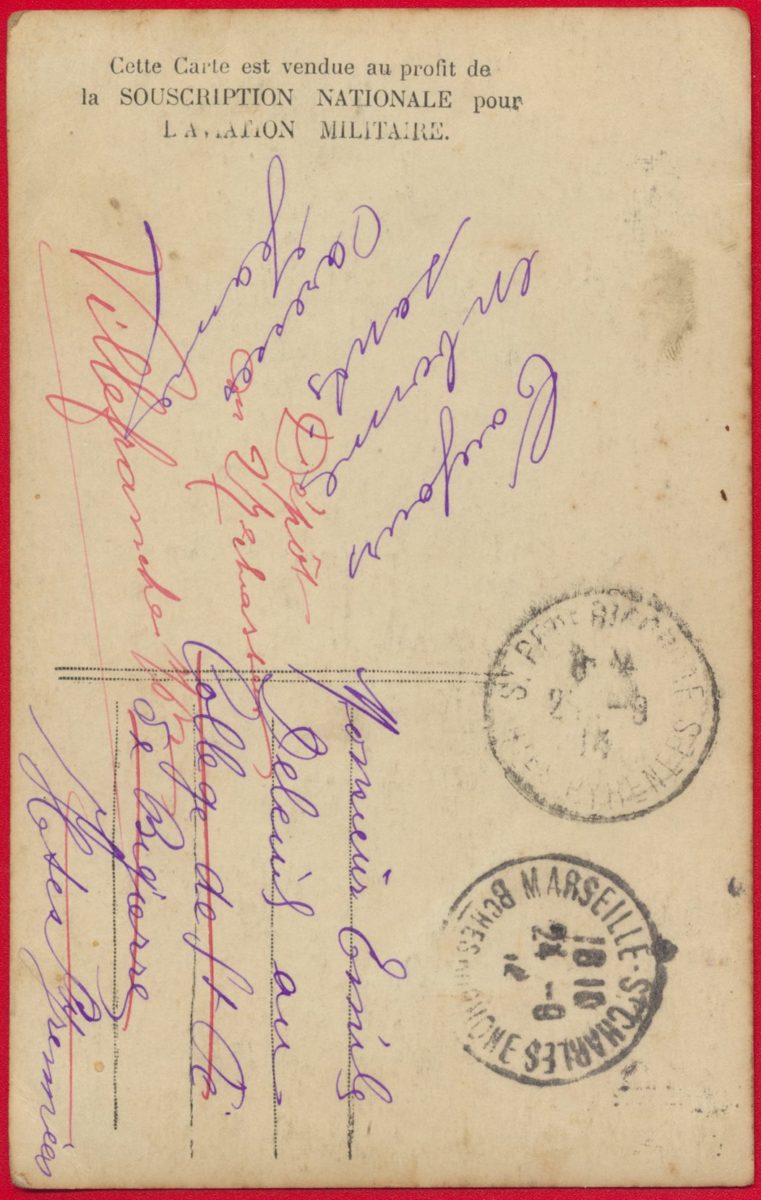 Cette Carte est vendue au profit de
la SOUSCRIPTION NATIONALE pour
L'AVIATION MILITAIRE.
Toujours
en bonne
santé
Caresses
Jeanne
Dépôt
de
Villefranche
Monsieur Emile
Deleuil au
Collège de St Pé
de Bigorre
Htes Pyrénées
ST PE DE BIGORRE
2 -9
14
HTES PYRENEES
MARSEILLE-ST CHARLES
1810
24 -9
14
BCHES DU RHONE